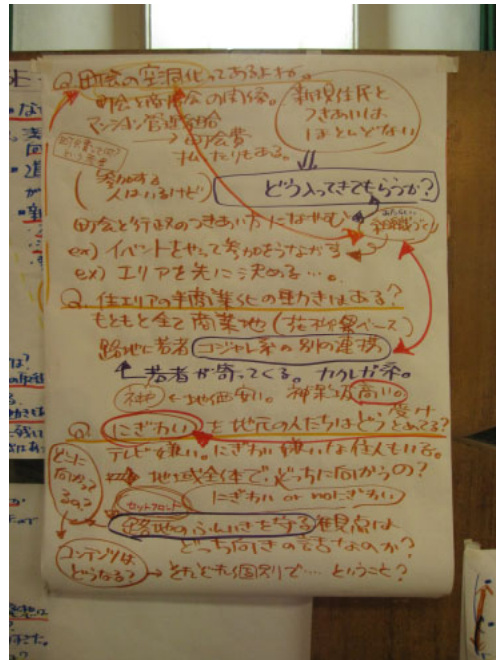 Q. 町会の空洞化ってあるよね。
町会と商店会の関係。
マンション管理組合
→町会費
払ったりもある。
新規住民と
つきあいは
ほとんどない
(参加する
人はいるけど)
どう入ってきてもらうか?
町会と行政のつきあい方になやむ
あたらしい
組織づくり
ex) イベントをやって参加をうながす
ex) エリアを先に決める…。
Q. 住エリアの半商業化の動きはある?
もともと全て商業地(花柳界ベース)
路地に若者 コジャレ系の別の連携
若者が寄ってくる。カクレガ系。
←地価安い。神楽坂高い。
Q. にぎわいを地元の人たちはどう受けとめてる?
テレビ嫌い。にぎわい嫌いな住人もいる。
どこに
向かっ
てるの?
地域全体で、どっちに向かうの?
にぎわい or notにぎわい
セットフロント
路地のふんいきを守る観点は
どっち向きの話なのか?
コンテンツは
どうなる?
→それとも個別で…ということ?